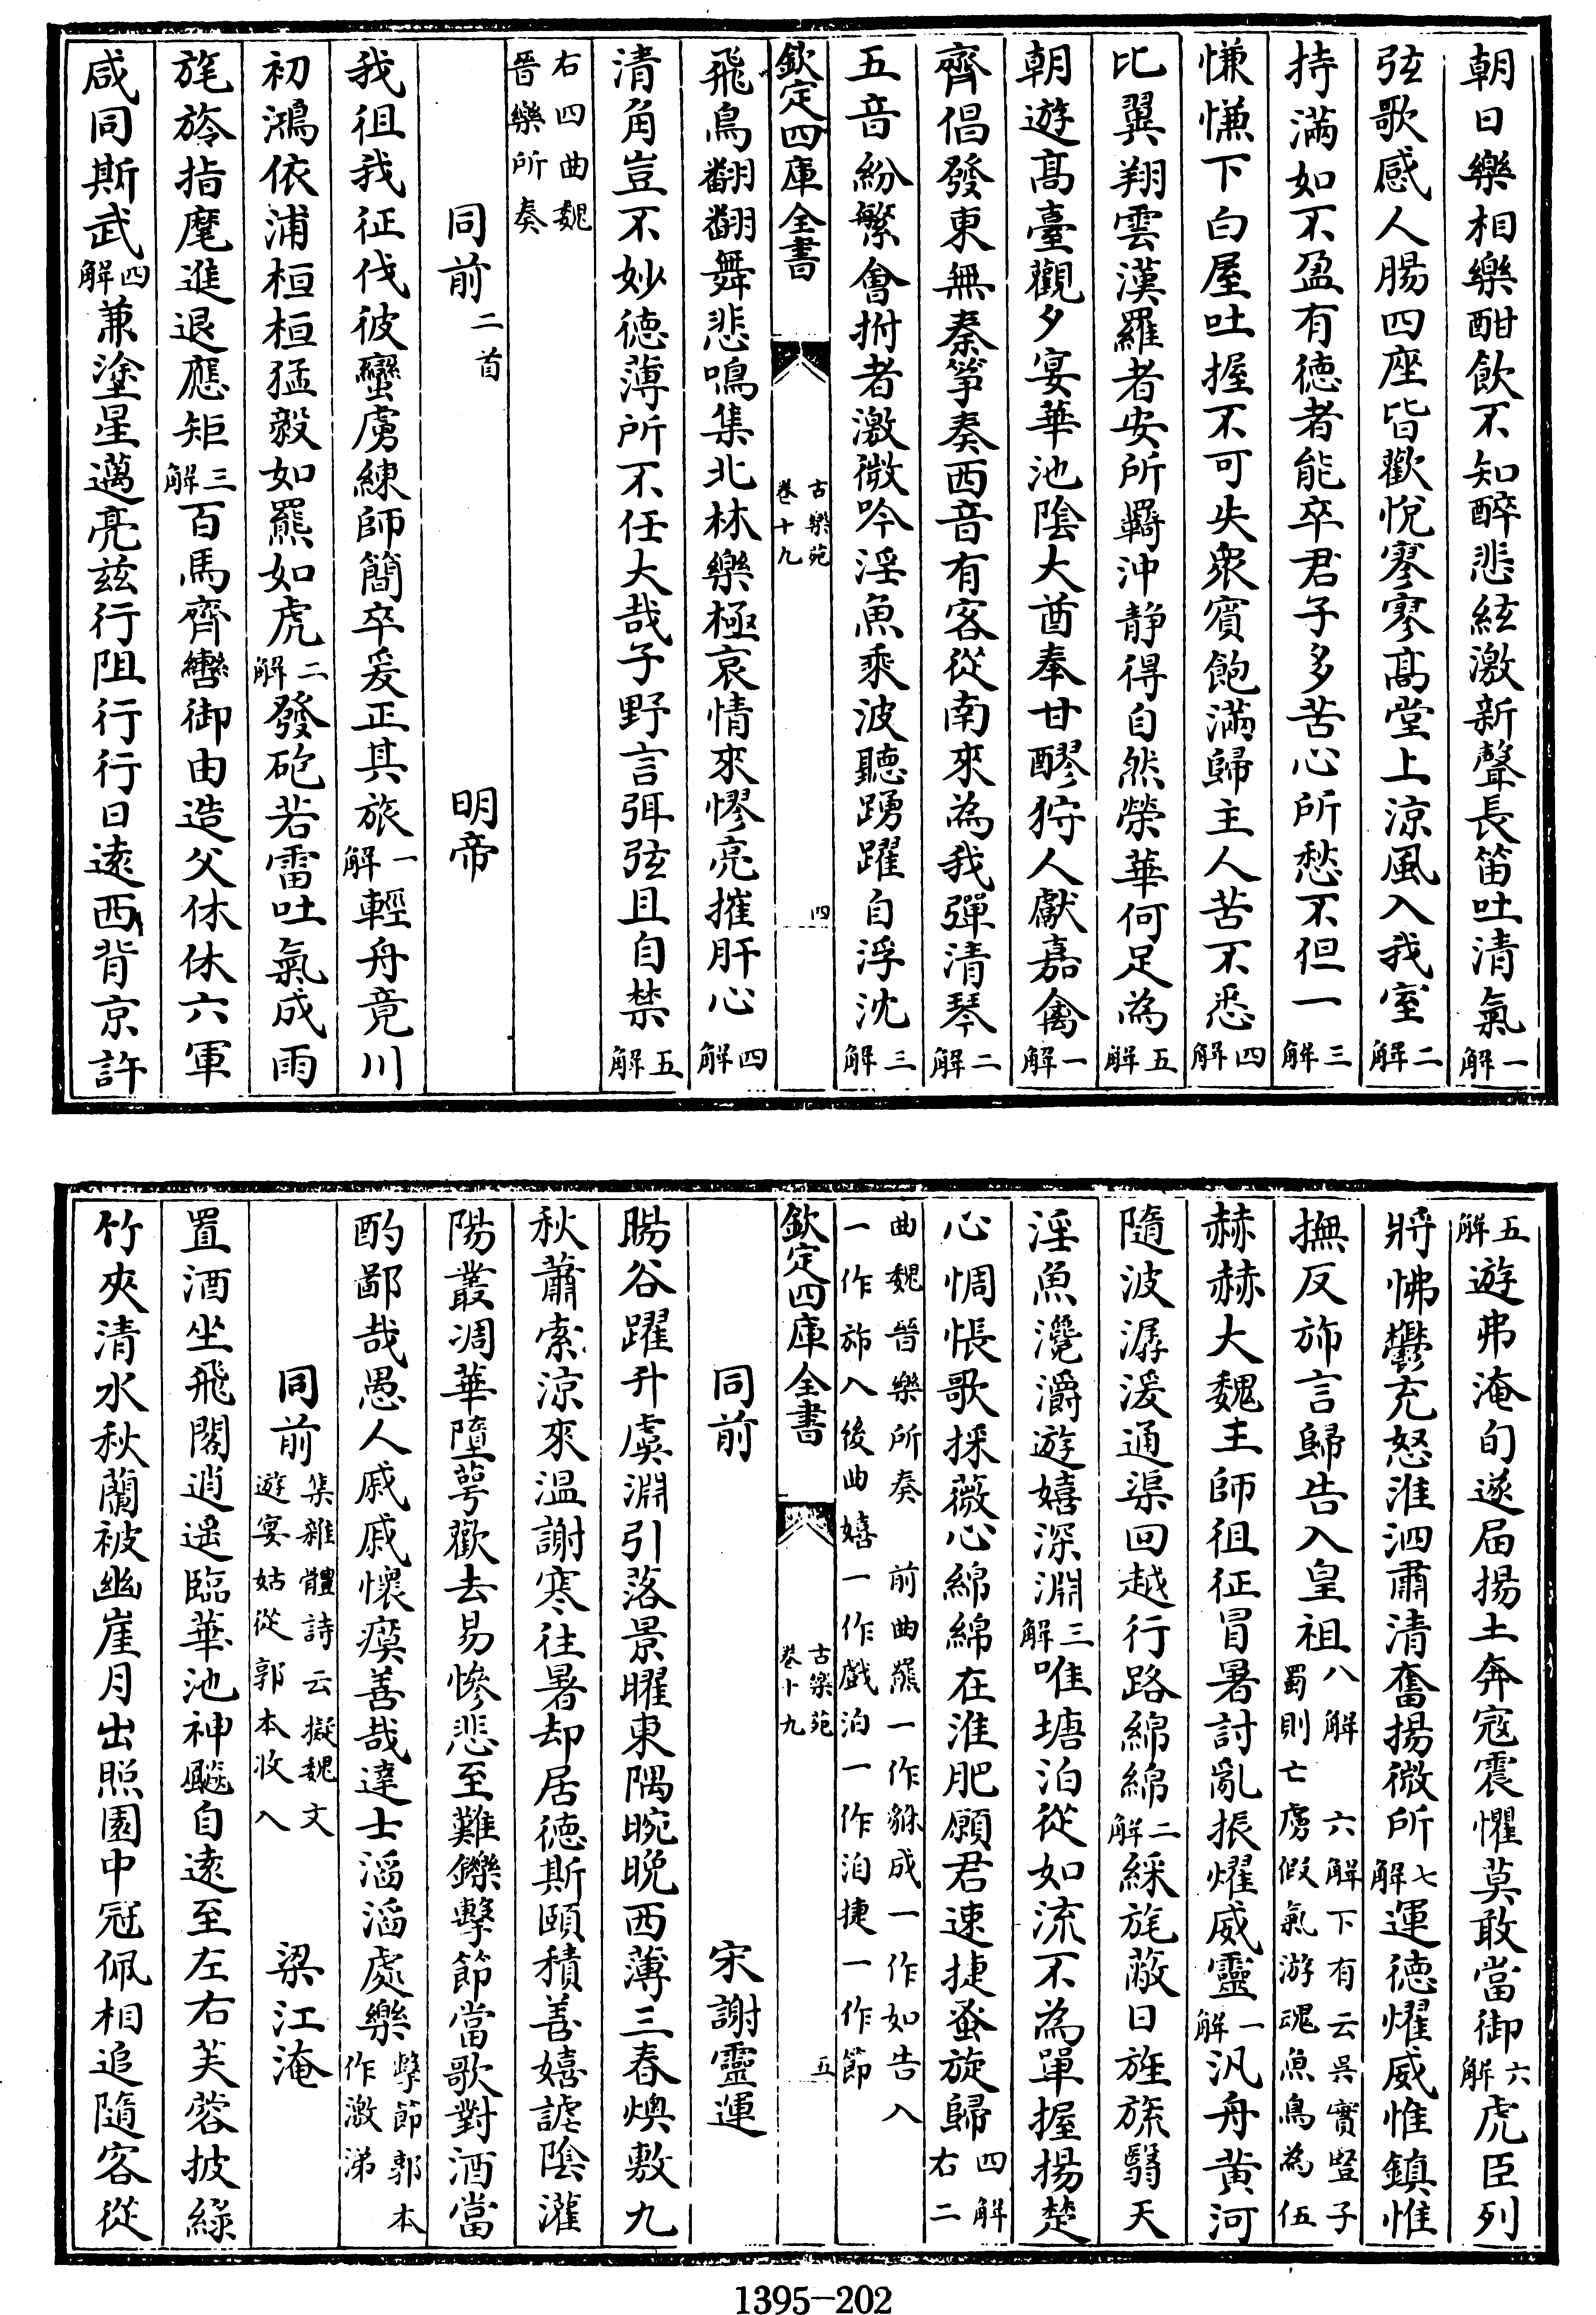 朝日樂相樂酣飲不知醉悲絃激新聲長笛吐清氣一解
弦歌感人腸四座皆歡悅寥寥髙堂上涼風入我室二解
持滿如不盈有徳者能卒君子多苦心所愁不但一三解
慊慊下白屋吐握不可失衆賓飽滿歸主人苦不悉四解
比翼翔雲漢羅者安所羇沖靜得自然榮華何足為五解
朝遊髙臺觀夕宴華池隂大酋奉甘醪狩人獻嘉禽一解
齊倡發東無秦箏奏西音有客從南來為我彈清琴二解
五音紛繁會拊者激微吟淫魚乘波聽踴躍自浮沈三解
欽定四庫全書 古樂苑 卷十九 四
飛鳥翻翻舞悲鳴集北林樂極哀情來憀亮摧肝心四解
清角豈不妙徳薄所不任大哉子野言弭弦且自禁五解
右四曲魏晉樂所奏
同前二首 明帝
我徂我征伐彼蠻虜練師簡卒爰正其旅一解輕舟竟川
初鴻依浦桓桓猛毅如羆如虎二解發砲若雷吐氣成雨
旄旍指麾進退應矩三解百馬齊轡御由造父休休六軍
咸同斯武四解兼塗星邁亮兹行阻行行日逺西背京許
五解遊弗淹旬遂届揚土奔寇震懼莫敢當御六解虎臣列
將怫鬱充怒淮泗肅清奮揚微所七解運徳燿威惟鎮惟
撫反斾言歸告入皇祖八解 六解下有云吳實豎子蜀則亡虜假氣游魂魚鳥為伍
赫赫大魏王師徂征冒暑討亂振燿威靈一解汎舟黄河
隨波潺湲通渠回越行路綿綿二解綵旄蔽日旌旒翳天
淫魚瀺灂遊嬉深淵三解唯塘泊從如流不為單握揚楚
心惆悵歌採薇心綿綿在淮肥願君速捷蚤旋歸四解右二
曲魏晉樂所奏 前曲羆一作貅成一作如告入一作斾入後曲嬉一作戲泊一作泊捷一作節
欽定四庫全書 古樂苑 卷十九 五
同前 宋謝靈運
暘谷躍升虞淵引落景曜東隅晼晚西薄三春燠敷九
秋蕭索涼來温謝寒往暑却居徳斯頤積善嬉謔隂灌
陽叢凋華墮萼歡去易慘悲至難鑠擊節當歌對酒當
酌鄙哉愚人戚戚懷瘼善哉達士滔滔處樂擊節郭本作激涕
同前集雜體詩云擬魏文遊宴姑從郭本收入 梁江淹
置酒坐飛閣逍遥臨華池神飈自逺至左右芙蓉披緑
竹夾清水秋蘭被幽崖月出照園中冠佩相追隨客從
1395-202